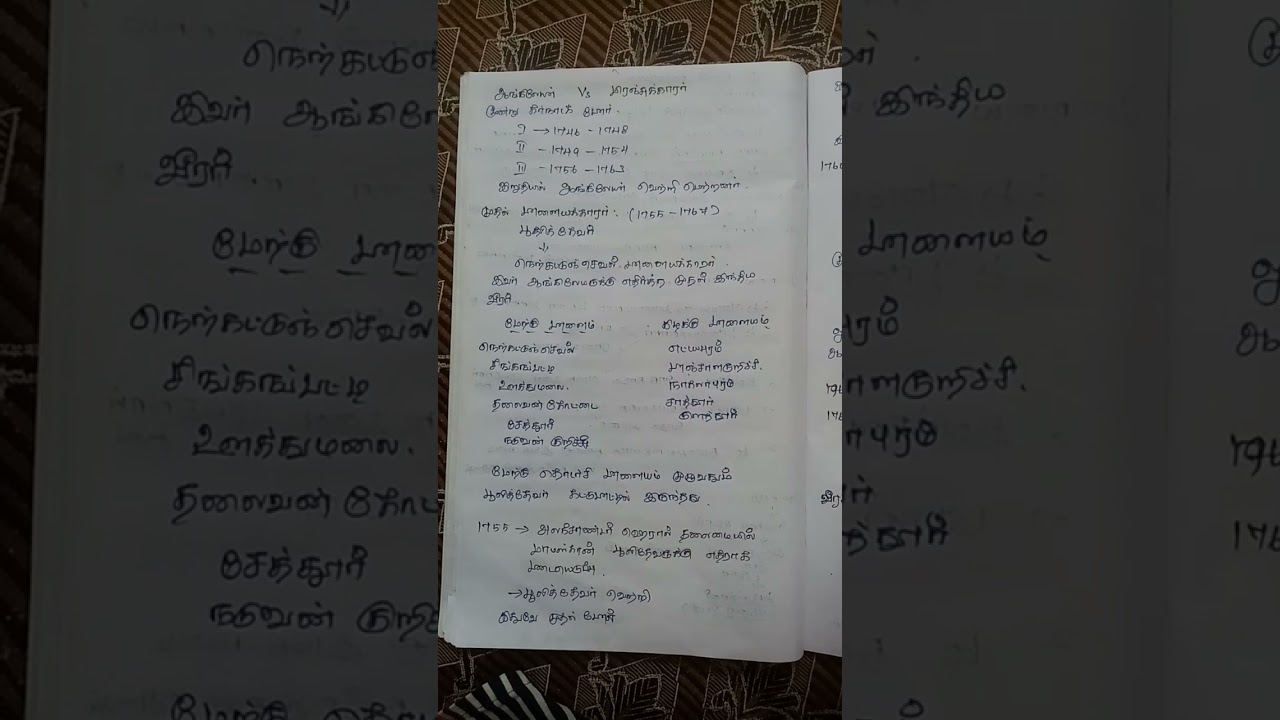 ஆங்கிலேயர் Vs பிரெஞ்சுக்காரர்
மூன்று கர்நாடக போர்.
I → 1746 - 1748
II - 1749 - 1754
III - 1756 - 1763
இறுதியில் ஆங்கிலேயர் வெற்றி பெற்றனர்.
முதல் பாளையக்காரர்: (1755 - 1767)
பூலித்தேவர்
↓
நெற்கட்டும் செவல் பாளையக்காரர்.
இவர் ஆங்கிலேயருக்கு எதிர்த்த முதல் இந்திய
வீரர்.
மேற்கு பாளையம் கிழக்கு பாளையம்
நெற்கட்டும் செவல் எட்டயபுரம்
சிங்கம்பட்டி பாஞ்சாளகுறிச்சி.
ஊத்துமலை. நாகலாபுரம்
தலைவன் கோட்டை சாத்தூர்
சேத்தூர் குளத்தூர்
நடுவன் குறிச்சி
மேற்கு பாளையம் முழுவதும்
பூலித்தேவர் கட்டுபாட்டில் இருந்தது.
1755 → அலெக்சாண்டர் ஹெரான் தலைமையில்
மாபஸ்கான் பூலித்தேவருக்கு எதிராக
→ பூலித்தேவர் வெற்றி
இதுவே முதல் போர்